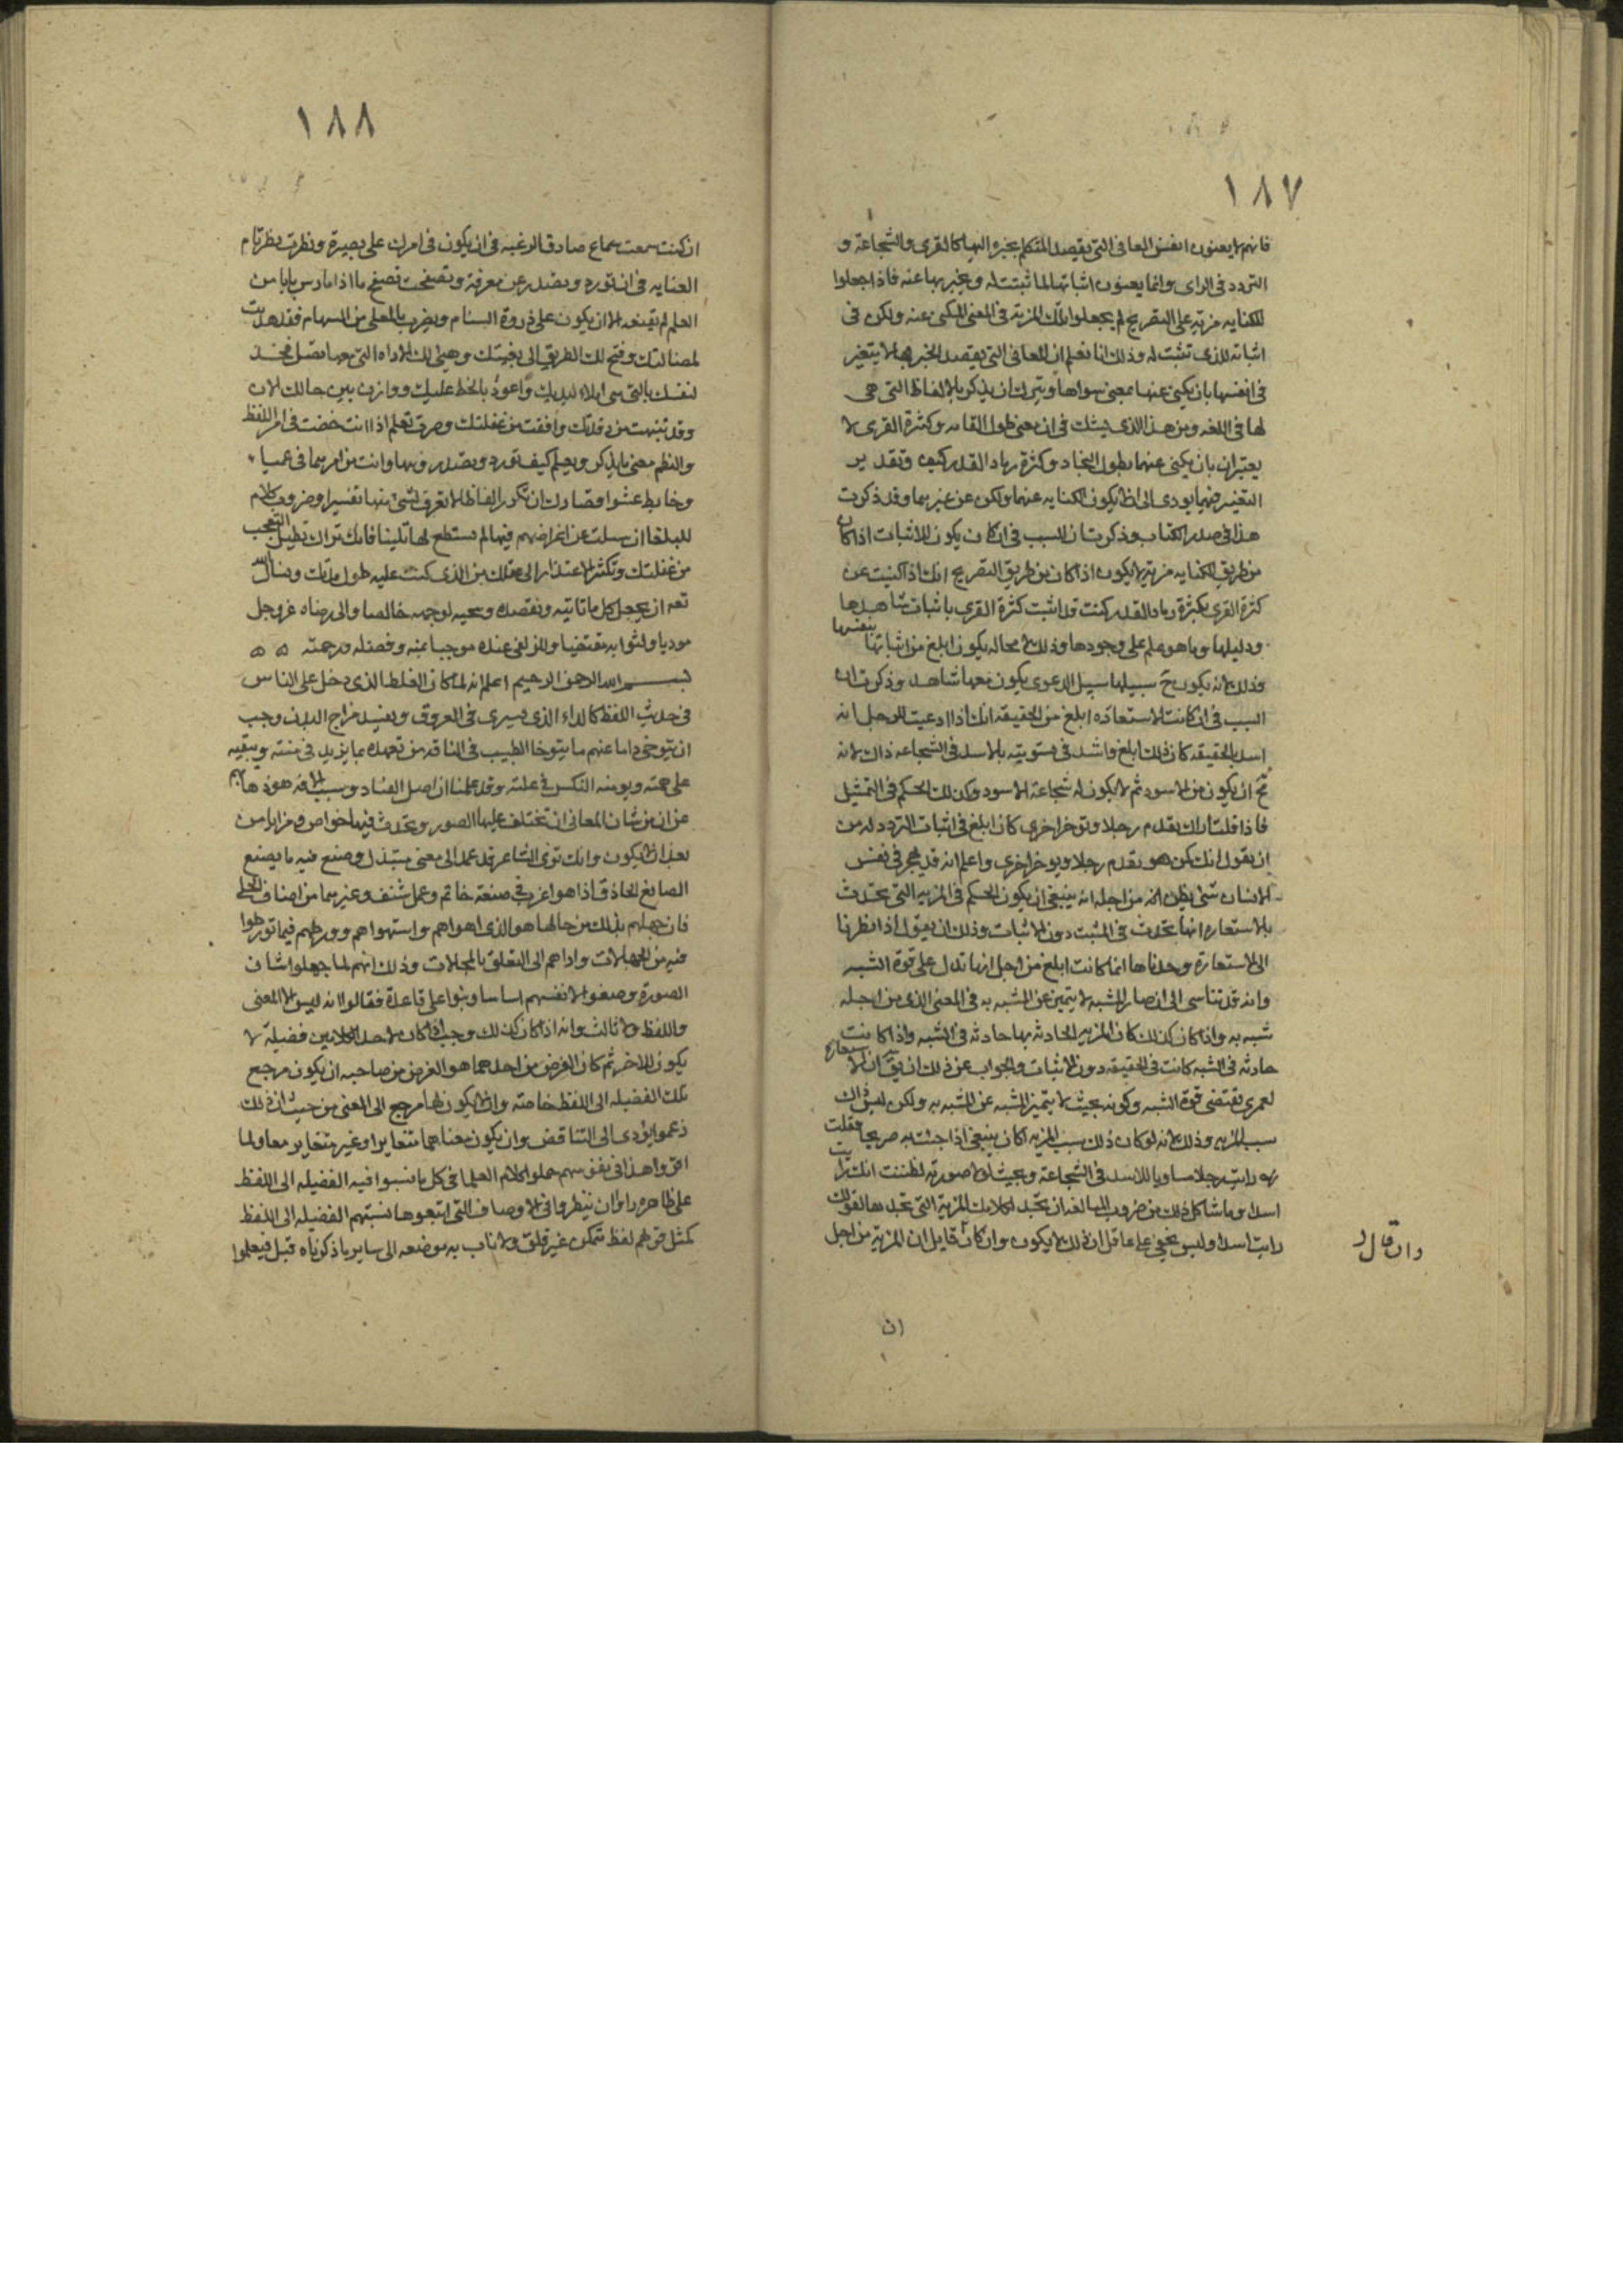 ١٨٧
فانهم لا يعنون انفس المعانى التى يقصد المتكلم بخبره اليها كالقرى والشجاعة و
التردد فى الراى وانما يعنون اثباتها لما ثبتت له ويخبر بها عنه فاذا جعلوا
للكنايه مزية على التصريح لم يجعلوا تلك المزية فى المعنى المكنى عنه ولكن فى
اثباته للذى تثبت له وذلك انا نعلم ان المعانى التى يقصد الخبر بها لا يتغير
فى انفسها بان يكنى عنها بمعنى سواها ويترك ان يذكر بالالفاظ التى هى
لها فى اللغه ومن هذا الذى يشك فى ان معنى طول القامه وكثرة القرى لا
يتغيران بان يكنى عنهما بطول النجاد وكثرة رماد القدر كيف وتقدير
التغير فيهما يودى الى ان لا يكون الكنايه عنهما ولكن عن غيرهما وقد ذكرت
هذا فى صدر الكتاب وذكرت ان السبب فى ان كان يكون للاثبات اذا كان
من طريق الكنايه مزية لا يكون اذا كان من طريق التصريح انك اذا كنيت عن
كثرة القرى بكثرة رماد القدر كنت قد اثبت كثرة القرى باثبات شاهدها
ودليلها وما هو علم على وجودها وذلك لا محاله يكون ابلغ من اثباتها بنفسها
وذلك لانه يكون ح سبيلها سبيل الدعوى يكون معها شاهد وذكرت ان
السبب فى ان كانت الاستعارة ابلغ من الحقيقه انك اذا ادعيت للرجل انه
اسد بالحقيقه كان ذلك ابلغ واشد فى تسويته بالاسد فى الشجاعه ذاك لانه
مح ان يكون من الاسود ثم لا يكون له شجاعة الاسود وكذلك الحكم فى التمثيل
فاذا قلت اراك تقدم رجلا وتوخر اخرى كان ابلغ فى اثبات التردد له من
ان يقول انك كمن هو يقدم رجلا ويوخر اخرى واعلم انه قد يهجر فى نفس
الانسان شى يظن انه من اجله انه ينبغى ان يكون الحكم فى المزيه التى تحدث
بالاستعاره انها تحدث فى المثبت دون الاثبات وذلك ان يقول اذا نظرنا
الى الاستعارة وجدناها انما كانت ابلغ من اجل انها تدل على قوة الشبه
وانه قد تناسى الى ان صار المشبه لا يتميز عن المشبه به فى المعنى الذى من اجله
شبه به واذا كان كذلك كان المزيه الحادثه بها حادثه فى الشبه واذا كانت
حادثه فى الشبه كانت فى الحقيقه دون الاثبات والجواب عن ذلك ان يق ان الاستعاره
لعمرى تقتضى قوة الشبه وكونه بحيث لا يتميز المشبه عن المشبه به ولكن ليس ذاك
سبب المزيه وذلك لانه لو كان ذلك سبب المزيه لكان ينبغى اذا جئت به صريحا فقلت
رايت رجلا مساويا للاسد فى الشجاعة وبحيث لولا صورته لظننت انك رايت
اسدا وما شاكل ذلك من ضروب المبالغه ان تجد لكلامك المزية التى تجدها لقولك
رايت اسدا وليس يخفى على عاقل ان ذلك لا يكون وان كان قايل ان المزية من اجل
وان قال
ان
١٨٨
ان كنت سمعت سماع صادق الرغبه فى ان يكون فى امرك على بصيرة ونظرت نظر تام
العنايه فى ان تورد وتصدر عن معرفة وتصفحت تصفح ما اذا مارس بابا من
العلم لم يقنعه الا ان يكون على ذروة السنام ويضرب بالمعلى من السهام فقد هديت
لضالتك وفتح لك الطريق الى بغيتك وهيئ لك الاداه التى بها تصل فخذ
لنفسك بالتى هى املاء ليديك واعود بالحظ عليك ووازن بين حالك الان
وقد تنبهت من رقدتك وافقت من غفلتك وصرت تعلم اذا انت خضت فى امر اللفظ
والنظم معنى ما يذكر ويعلم كيف تورد وتصدر وبينها وانت من امرهما فى عميا
وخابط عشوا قصاراك ان تكرر الفاظا لا تعرف لشى منها تفسيرا وضروب كلام
للبلغا ان سيلت عن اغراضهم فيها لم تستطع لها تبيينا فانك تراك تطيل التعجب
من غفلتك وتكثر الاعتذار الى عقلك من الذى كنت عليه طول مدتك ونسال الله
تعه ان يجعل كل ما تاتيه ونقصده وننحيه لوجهه خالصا والى رضاه عز وجل
موديا ولثوابه مقتضيا وللزلفى عنده موجبا بمنه وفضله ورحمته ه ه
بسم الله الرحمن الرحيم اعلم انه لما كان الغلط الذى دخل على الناس
فى حديث اللفظ كالداء الذى يسرى فى العروق ويفسد مزاج البدن وجب
ان يتوخى دايما عنهم ما يتوخا الطبيب فى الناقه من تعهده بما يزيد فى منته ويبقيه
على صحته ويومنه النكس فى علته وقد علمنا ان اصل الفساد وسبب الافه هو ذهابهم
عن ان من شان المعانى ان تختلف عليها الصور وتحدث فيها خواص ومزايا من
بعد ان لا يكون وانك ترى الشاعر قد عمد الى معنى مبتذل وصنع فيه ما يصنع
الصانع الحاذق اذا هو اغرب فى صنعة خاتم وعمل شنف وغيرهما من اصناف الحلى
فان جهلهم بذلك من حالها هو الذى اهواهم واستهواهم وورطهم فيما تورطوا
فيه من الجهالات واداهم الى التعلق بالمحالات وذلك انهم لما جهلوا شان
الصورة وضعوا لانفسهم اساسا وبنوا على قاعدة فقالوا انه ليس الا المعنى
واللفظ ولا ثالث وانه اذا كان كذلك وجب اذا كان لاحد الكلامين فضيلة لا
يكون للاخر ثم كان الغرض من احدهما هو الغرض من صاحبه ان يكون مرجع
تلك الفضيله الى اللفظ خاصة وان لا يكون لها مرجع الى المعنى من حيث ان ذلك
زعموا يودى الى التناقض وان يكون معناهما متغايرا وغير متغاير معا ولما
اقروا هذا فى نفوسهم حملوا كلام العلما فى كل ما نسبوا فيه الفضيله الى اللفظ
على ظاهره وابوا ان ينظروا فى الاوصاف التى اتبعوها نسبتهم الفضيله الى اللفظ
كمثل قولهم لفظ متمكن غير قلق ولا ناب به موضعه الى ساير ما ذكرناه قبل فيعلموا